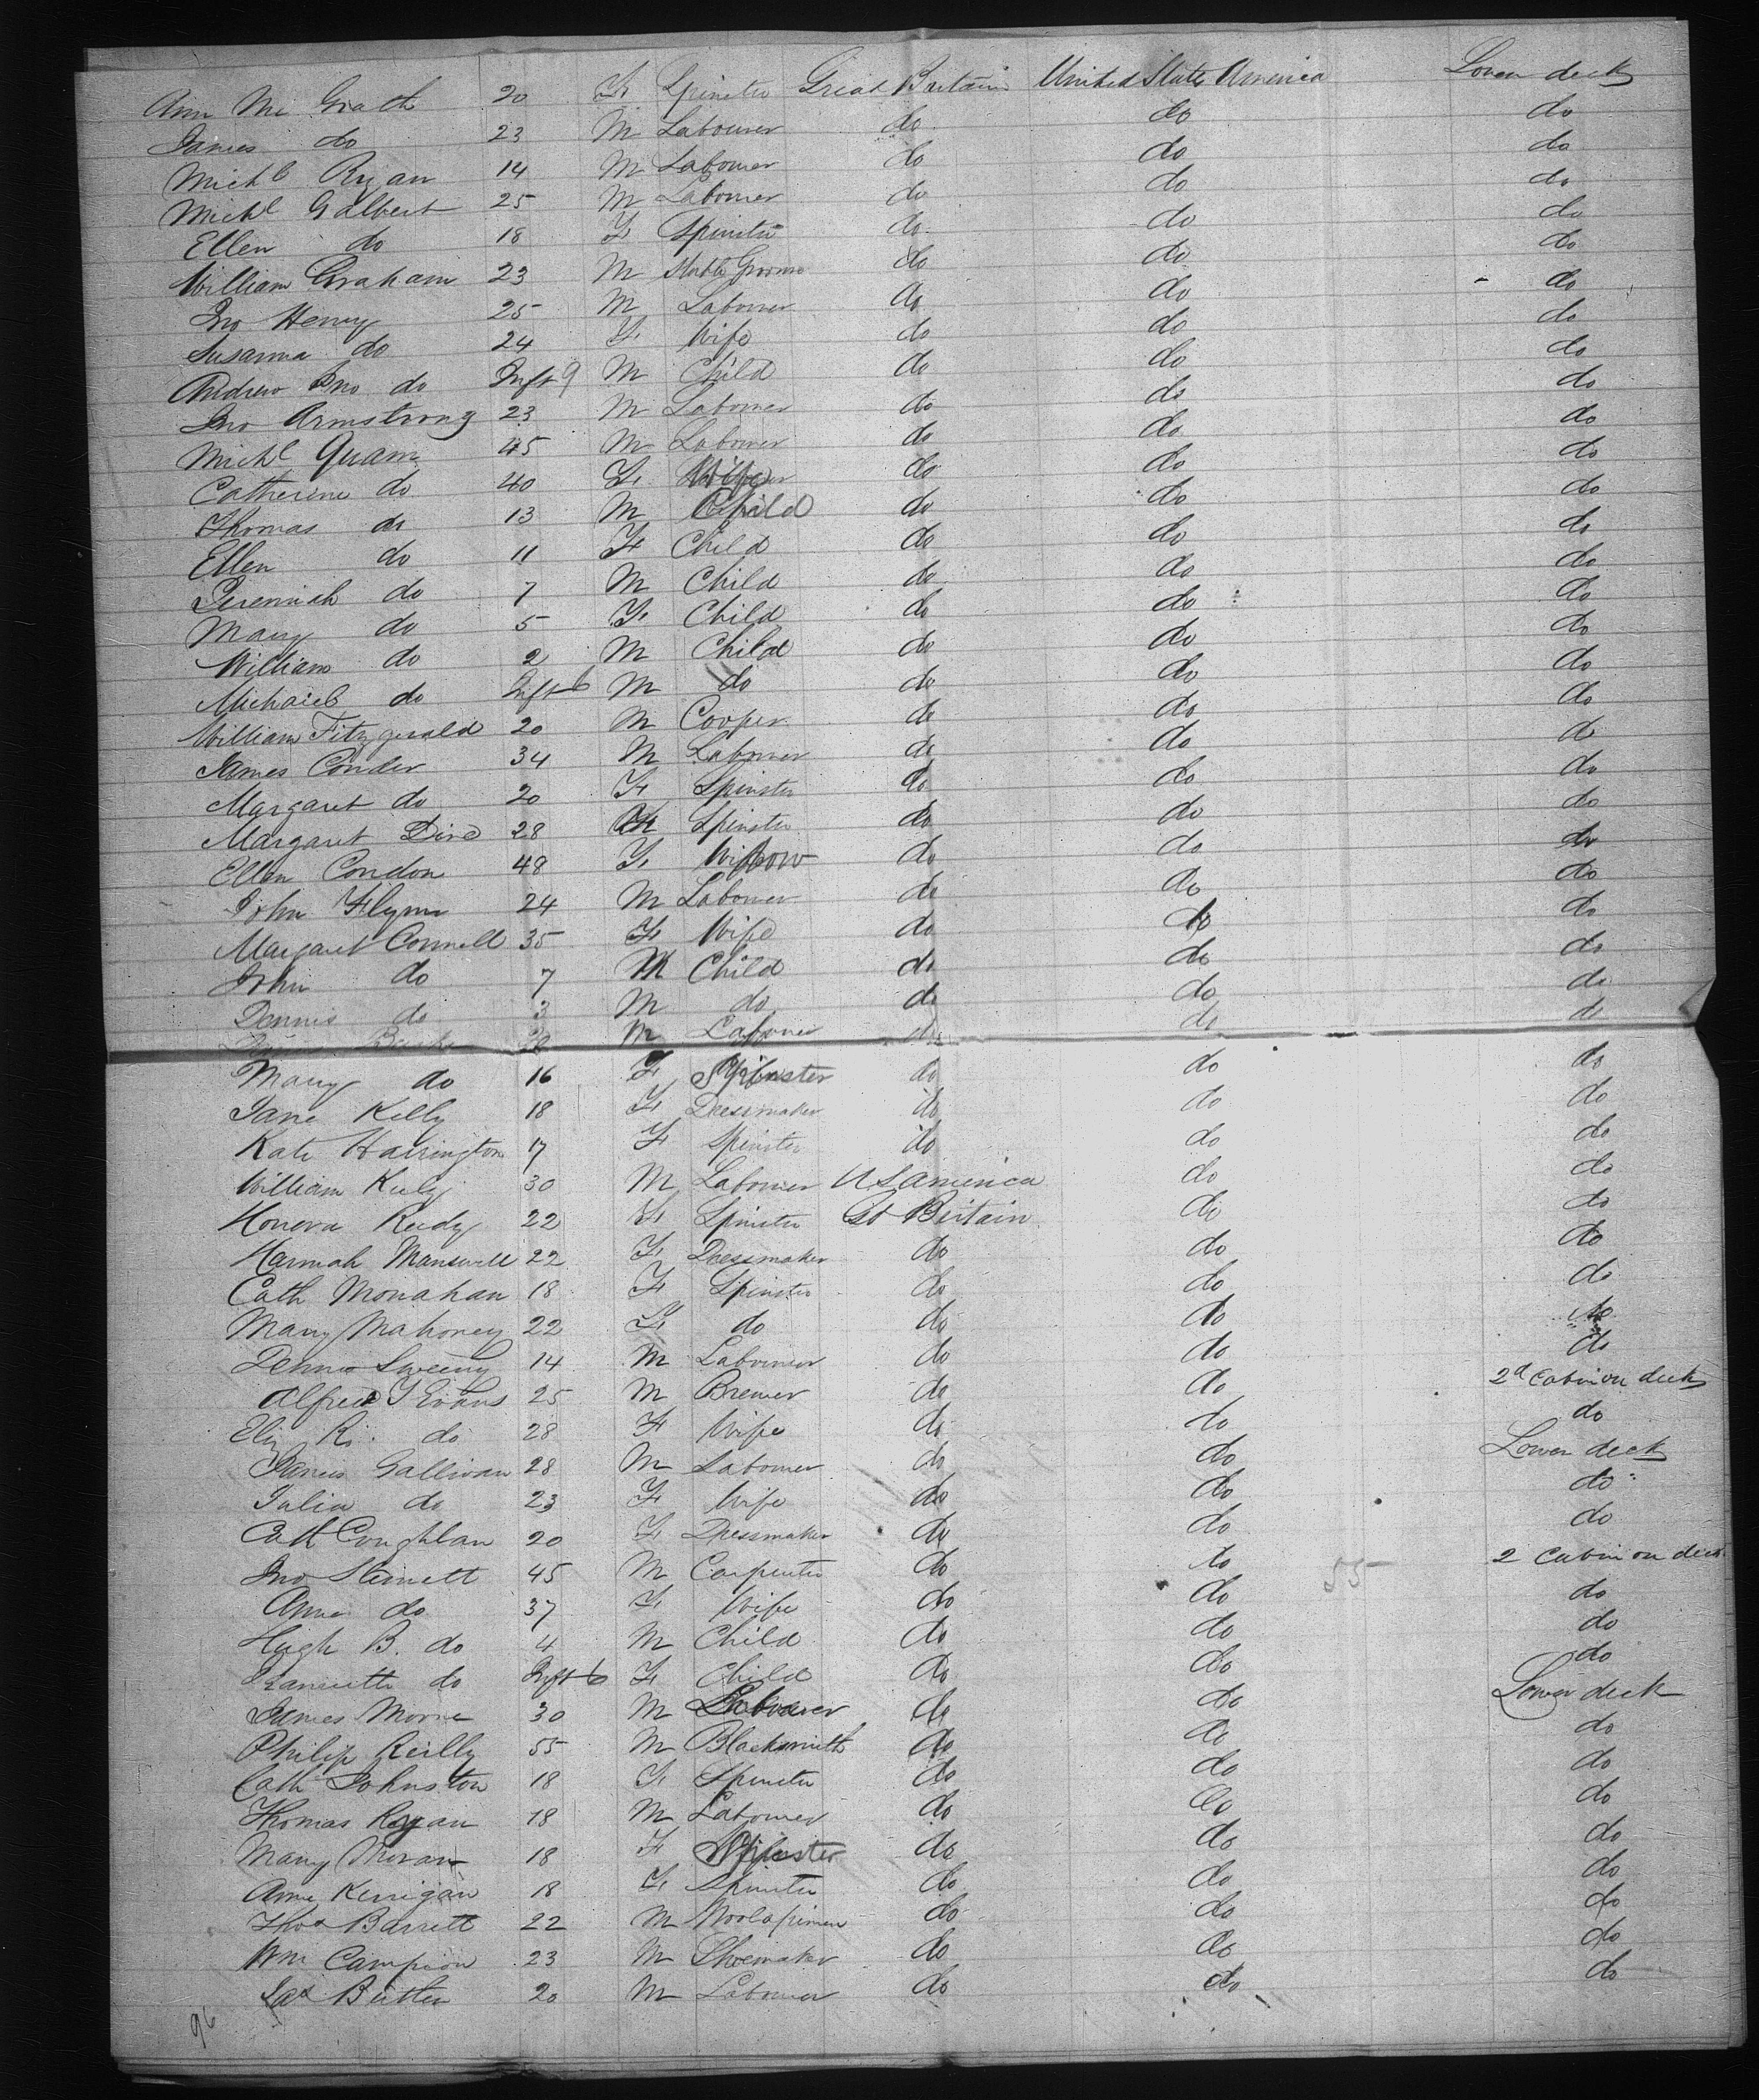 Ann Mc Grath 20 F Spinster Great Britain United States America Lower deck
James do 23 M Labourer do do do
Michl Ryan 14 M Labourer do do do
Michl Galbert 25 M Labourer do do do
Ellen do 18 F Spinster do do do
William Graham 23 M Stable Groom do do do
Jno Henry 25 M Labourer do do do
Susanna do 24 F Wife do do do
Andrew Jno do Inft 9 M Child do do do
Jno Armstrong 23 M Labourer do do do
Michl Quam 45 M Labourer do do do
Catherine do 40 F Wife do do do
Thomas do 13 M Child do do do
Ellen do 11 F Child do do do
Jeremiah do 7 M Child do do do
Mary do 5 F Child do do do
William do 2 M Child do do do
Michael do Inft 6 M do do do do
William Fitzgerald 20 M Cooper do do do
James Conder 34 M Labourer do do do
Margaret do 20 F Spinster do do do
Margaret Dine 28 F Spinster do do do
Ellen Condon 48 F Widow do do do
John Flynn 24 M Labourer do do do
Margaret Connell 35 F Wife do do do
John do 7 M Child do do do
Dennis do 3 M do do do do
M Labourer do do do
Mary do 16 F Spinster do do do
Jane Kelly 18 F Dressmaker do do do
Kate Harrington 17 F Spinster do do do
William Kiely 30 M Labourer U S America do do
Honora Reidy 22 F Spinster Gt Britain do do
Hannah Answell 22 F Dressmaker do do do
Cath Monahan 18 F Spinster do do do
Mary Mahoney 22 F do do do do
Dennis Sweeny 14 M Labourer do do do
Alfred J Evans 25 M Brewer do do 2d Cabin on deck
Eliz R. do 28 F Wife do do do
James Gallivan 28 M Labourer do do Lower deck
Julia do 23 F Wife do do do
Cath Coughlan 20 F Dressmaker do do do
Jno Stennett 45 M Carpenter do do 55 2 Cabin on deck
Anne do 37 F Wife do do do
Hugh B. do 4 M Child do do do
do Inft 6 F Child do do do
James Moore 30 M Labourer do do Lower deck
Philip Reilly 55 M Blacksmith do do do
Cath Johnston 18 F Spinster do do do
Thomas Regan 18 M Labourer do do do
Mary Moran 18 F Spinster do do do
Anne Kerrigan 18 F Spinster do do do
Thos Barrett 22 M do do do
Wm Campion 23 M Shoemaker do do do
Jas Butler 20 M Labourer do do do
96